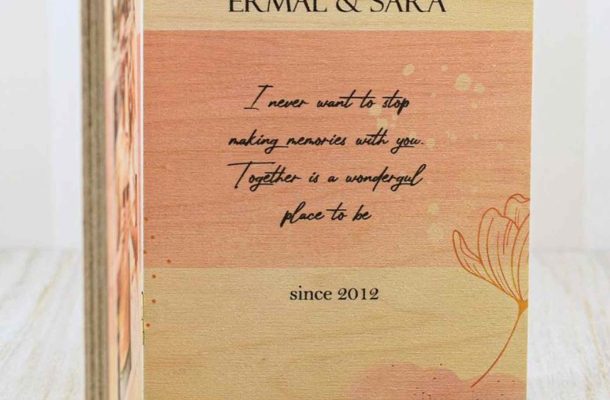 ERMAL & SARA
I never want to stop
making memories with you.
Together is a wonderful
place to be
since 2012